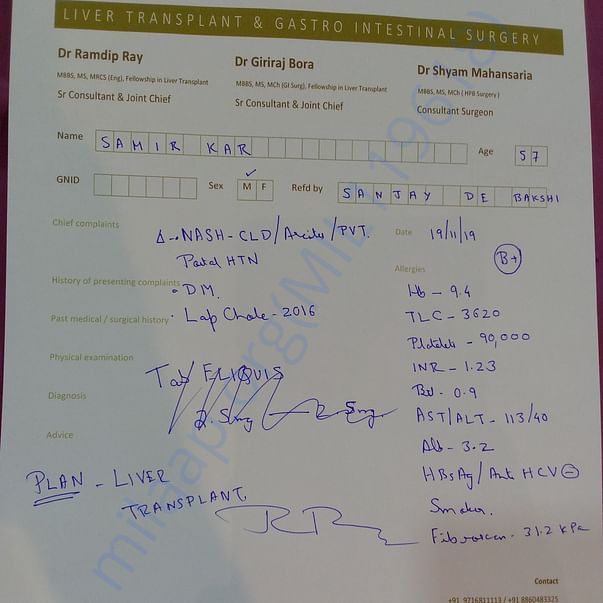 LIVER TRANSPLANT & GASTRO INTESTINAL SURGERY
Dr Ramdip Ray
MBBS, MS, MRCS (Eng), Fellowship in Liver Transplant
Sr Consultant & Joint Chief
Dr Giriraj Bora
MBBS, MS, MCh (GI Surg), Fellowship in Liver Transplant
Sr Consultant & Joint Chief
Dr Shyam Mahansaria
MBBS, MS, MCh ( HPB Surgery )
Consultant Surgeon
Name SAMIR KAR Age 57
GNID Sex M ✓ F Refd by SANJAY DE BAKSHI
Chief complaints
Δ - NASH - CLD / Ascites / PVT.
Portal HTN
Date 19/11/19
B+
Allergies
History of presenting complaints
• DM.
Past medical / surgical history
• Lap Chole - 2016
Physical examination
Tab ELIQUIS
Diagnosis
2.5mg 2.5mg
Advice
PLAN - LIVER
TRANSPLANT.
Hb - 9.4
TLC - 3620
Platelets - 90,000
INR - 1.23
Bil - 0.9
AST/ALT - 113/40
Alb - 3.2
HBsAg / Anti HCV ⊖
Smoker.
Fibroscan - 31.2 kPa
Contact
+91 9716811113 / +91 8860483325
milaap.org(MIL